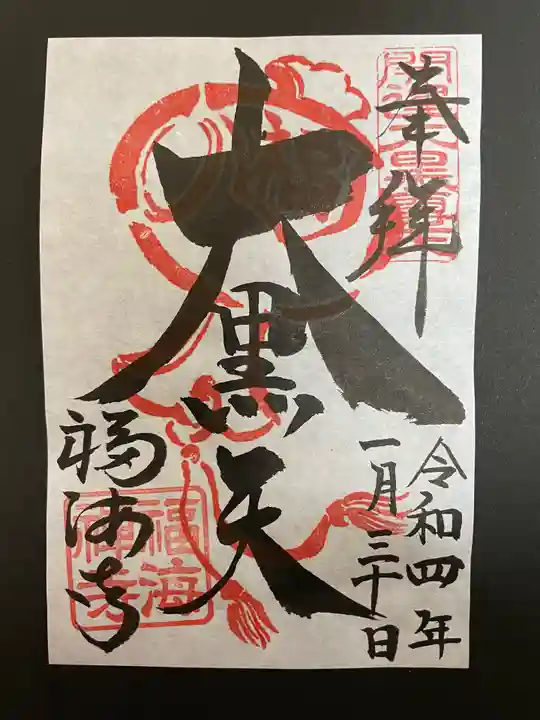 奉拝
令和四年
一月三十日
大黒天
福海寺
福海禅寺